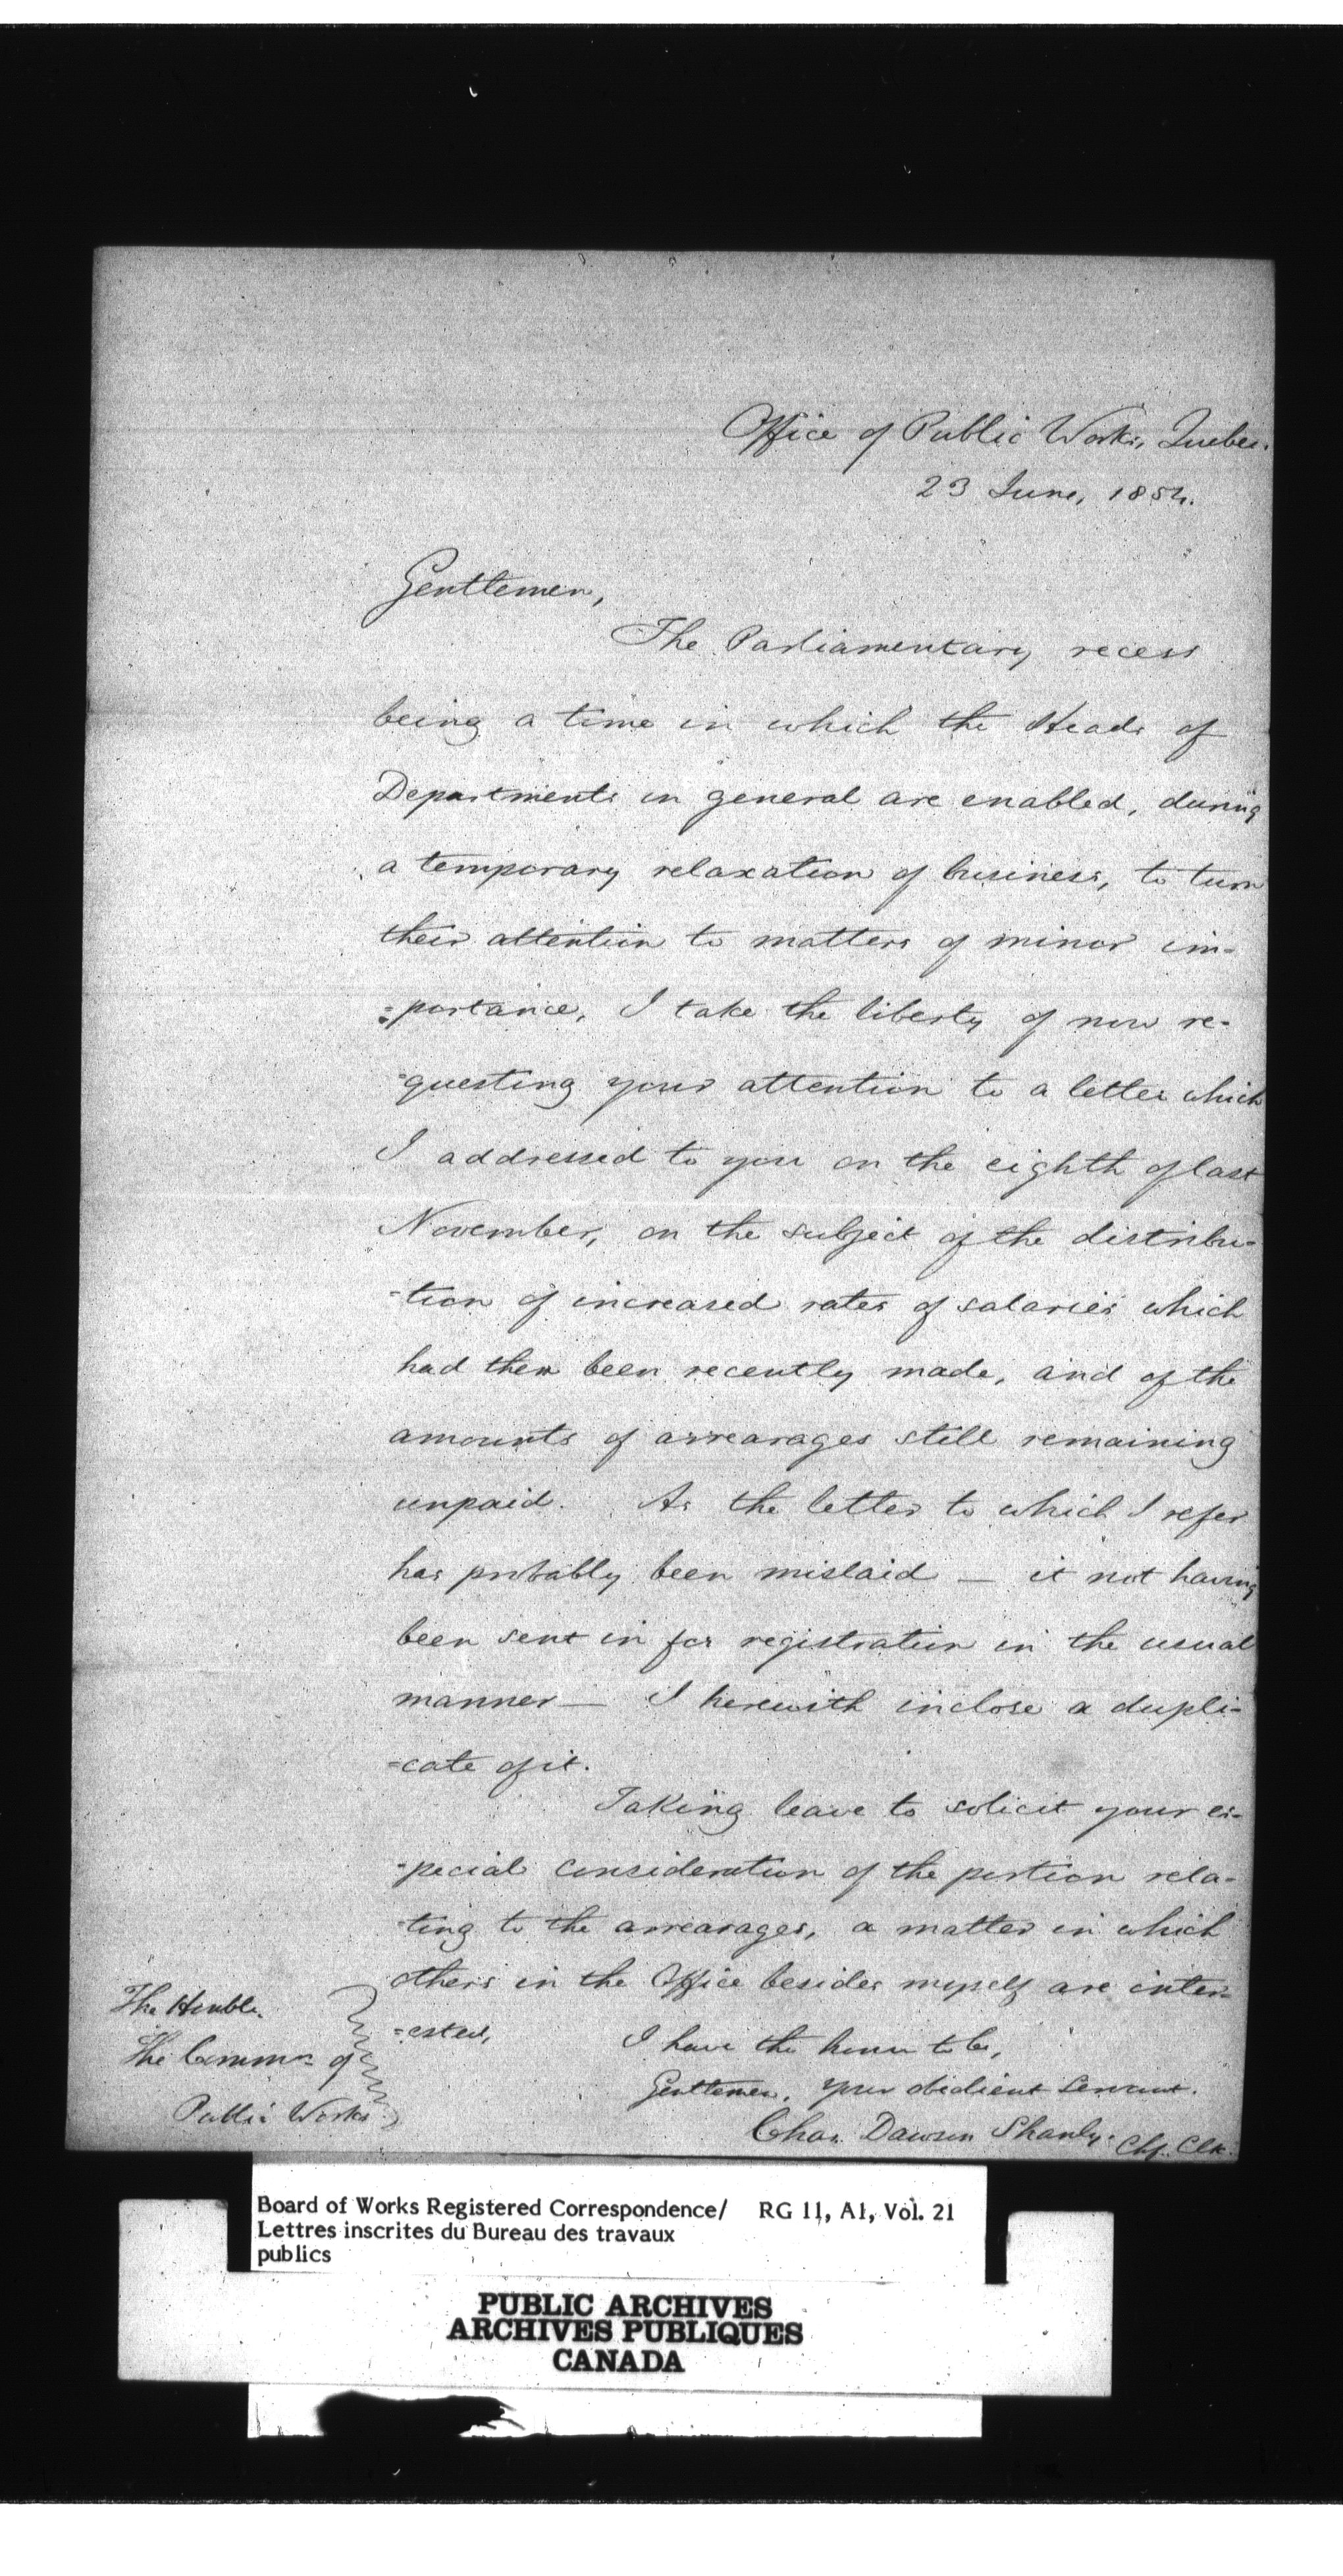 Office of Public Works, Quebec.
23 June, 1854.
Gentlemen,
The Parliamentary recess
being a time in which the Heads of
Departments in general are enabled, during
a temporary relaxation of business, to turn
their attention to matters of minor im-
=portance, I take the liberty of now re-
-questing your attention to a letter which
I addressed to you on the eighth of last
November, on the subject of the distribu-
-tion of increased rates of salaries which
had then been recently made, and of the
amounts of arrearages still remaining
unpaid. As the letter to which I refer
has probably been mislaid — it not having
been sent in for registration in the usual
manner — I herewith inclose a dupli-
=cate of it.
Taking leave to solicit your es-
-pecial consideration of the portion rela-
-ting to the arrearages, a matter in which
others in the Office besides myself are inter-
=ested,
I have the honor to be,
Gentlemen, your obedient Servant.
Chas. Dawson Shanly. Chf. Clk.
The Honble.
The Commrs of
Public Works
Board of Works Registered Correspondence/ RG 11, A1, Vol. 21
Lettres inscrites du Bureau des travaux
publics
PUBLIC ARCHIVES
ARCHIVES PUBLIQUES
CANADA